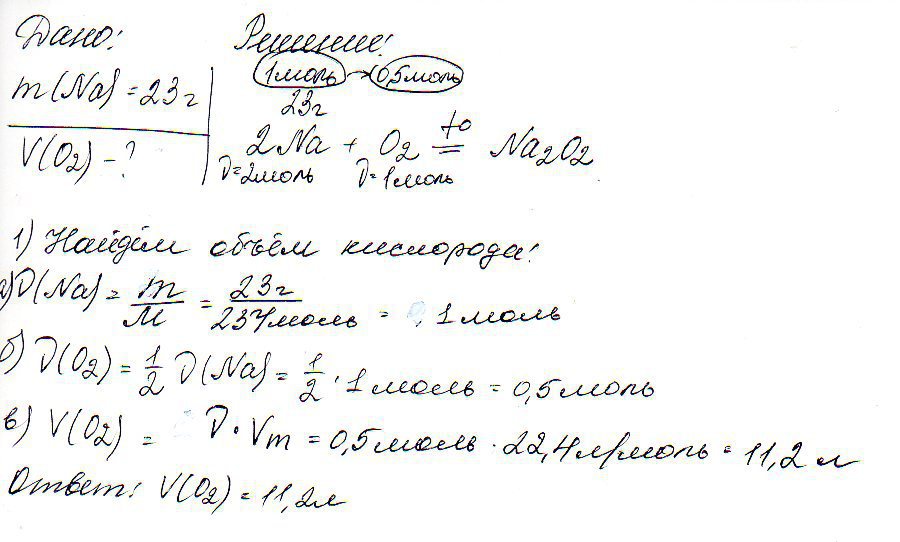 Дано: Решение:
1 моль → 0,5 моль
m(Na) = 23 г
23 г
2Na + O₂ t° = Na₂O₂
V(O₂) - ?
ν = 2 моль ν = 1 моль
1) Найдём объём кислорода:
а) ν(Na) = m/M = 23 г/23 г/моль = 1 моль
б) ν(O₂) = 1/2 ν(Na) = 1/2 · 1 моль = 0,5 моль
в) V(O₂) = ν · Vm = 0,5 моль · 22,4 л/моль = 11,2 л
Ответ: V(O₂) = 11,2 л